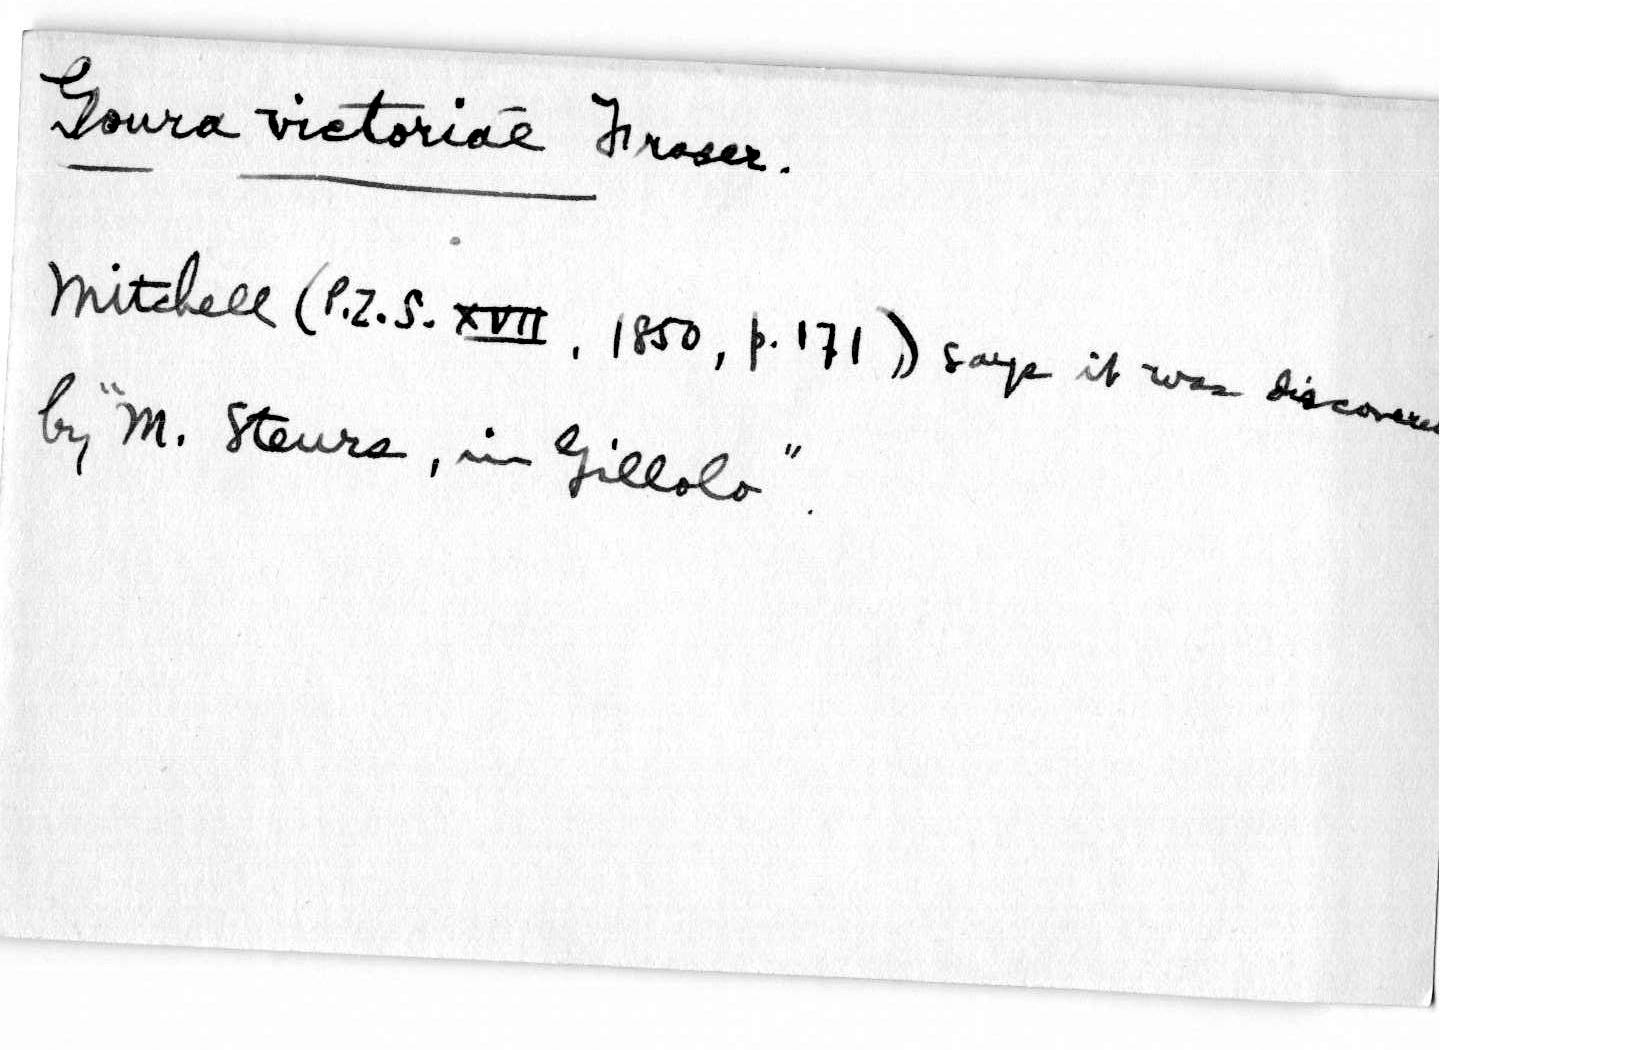 Goura victoriae Fraser.
Mitchell (P.Z.S. XVII, 1850, p. 171) says it was discovered
by "M. Steurs, in Gillolo".